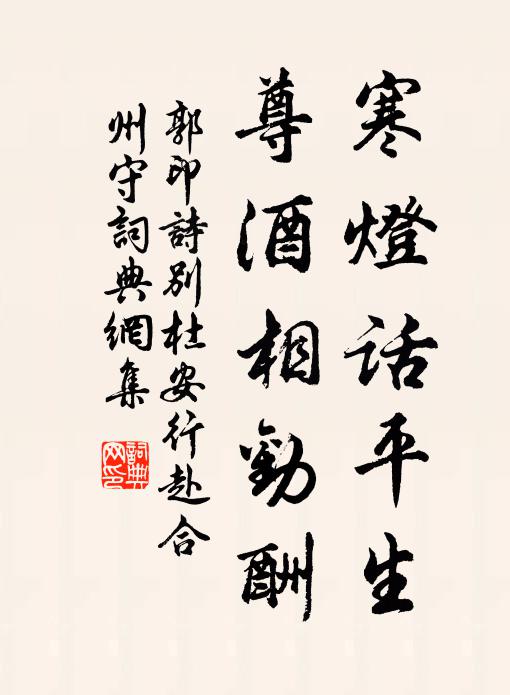 寒燈話平生
尊酒相勸酬
郭印詩別杜安行赴合
州守詞典網集
詞典網印